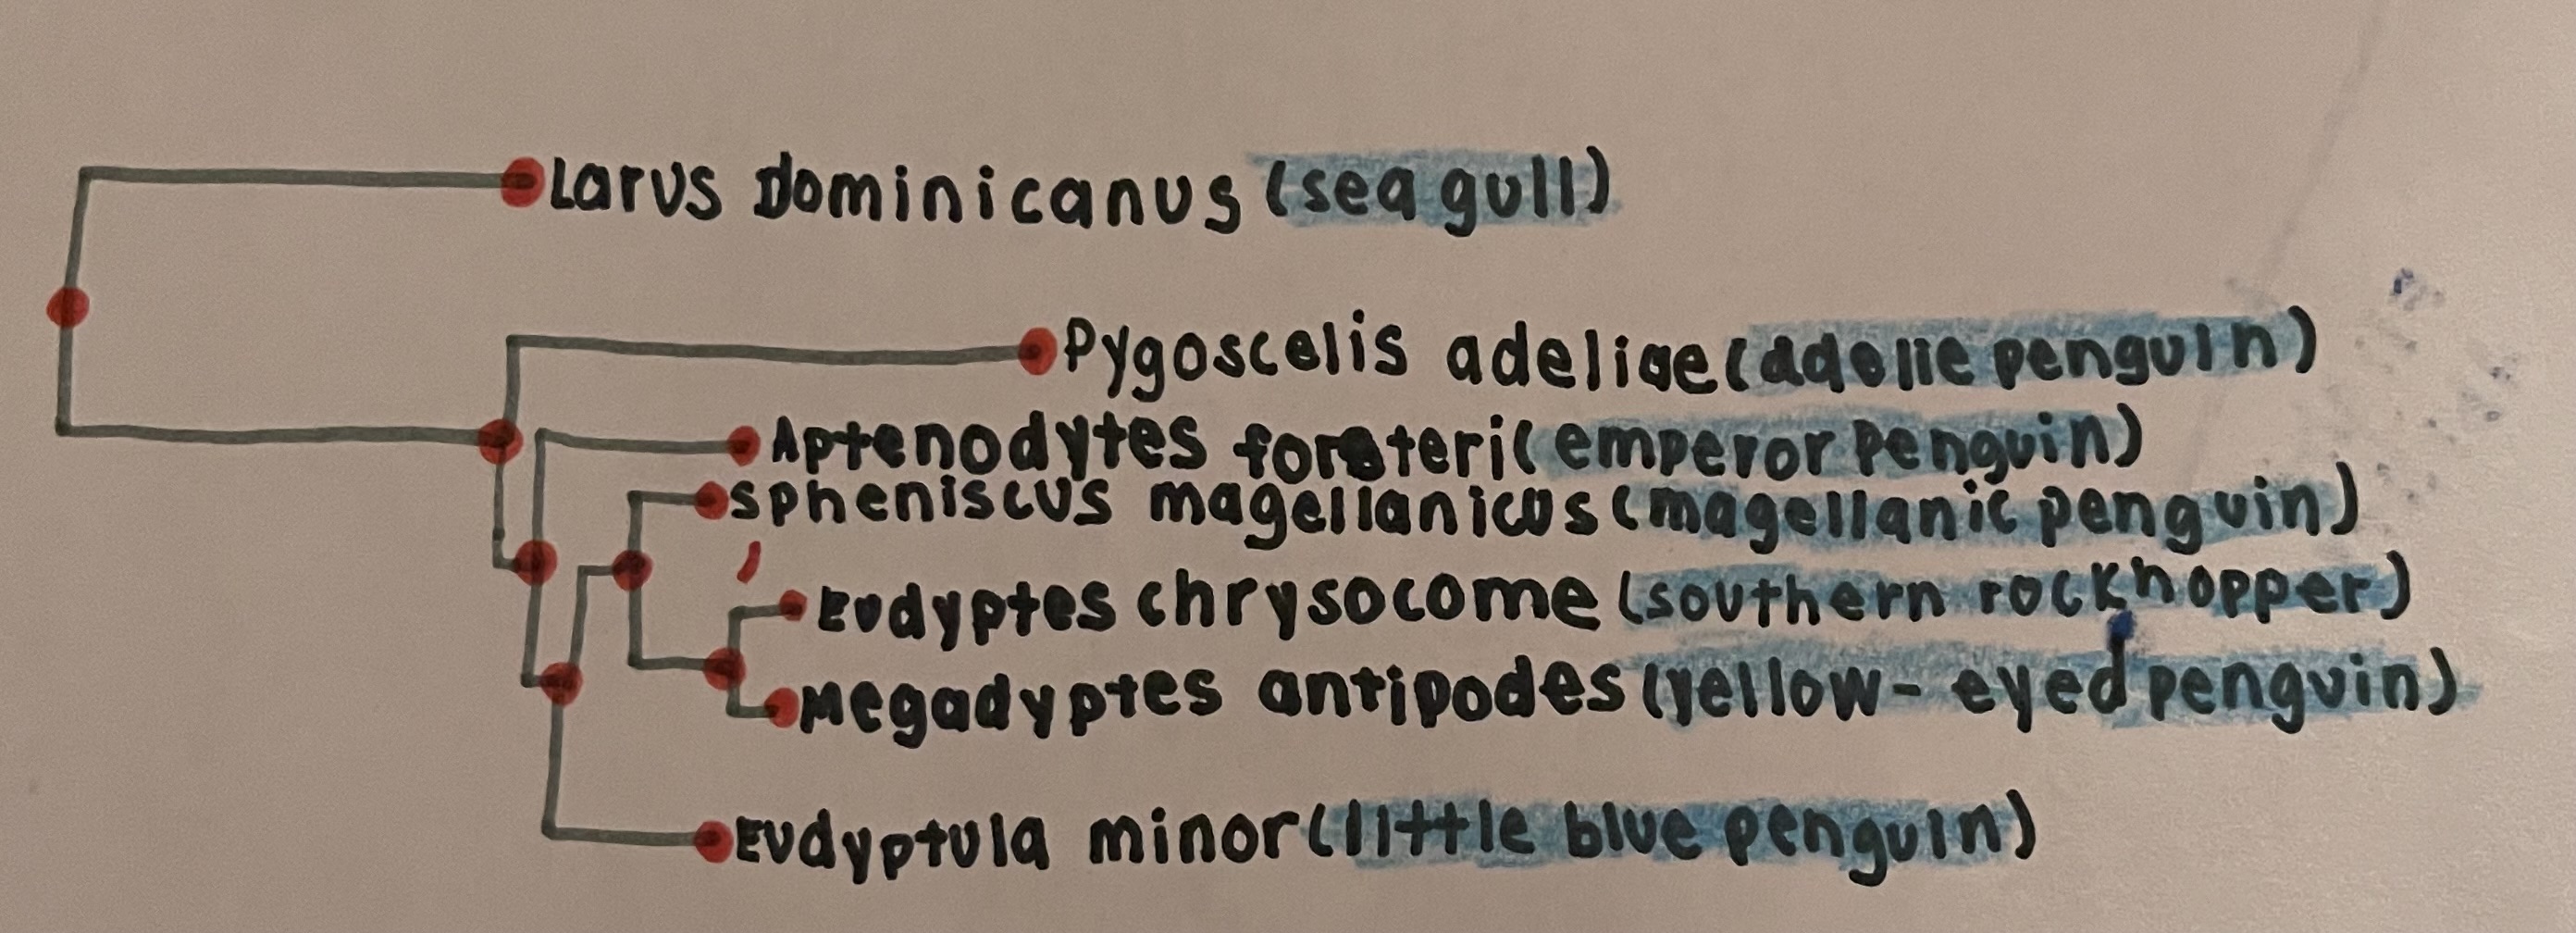 Larus Dominicanus (sea gull)
Pygoscelis adeliae (adelie penguin)
Aptenodytes forsteri (emperor Penguin)
spheniscus magellanicus (magellanic penguin)
Eudyptes chrysocome (southern rockhopper)
Megadyptes antipodes (yellow-eyed penguin)
Eudyptula minor (little blue penguin)